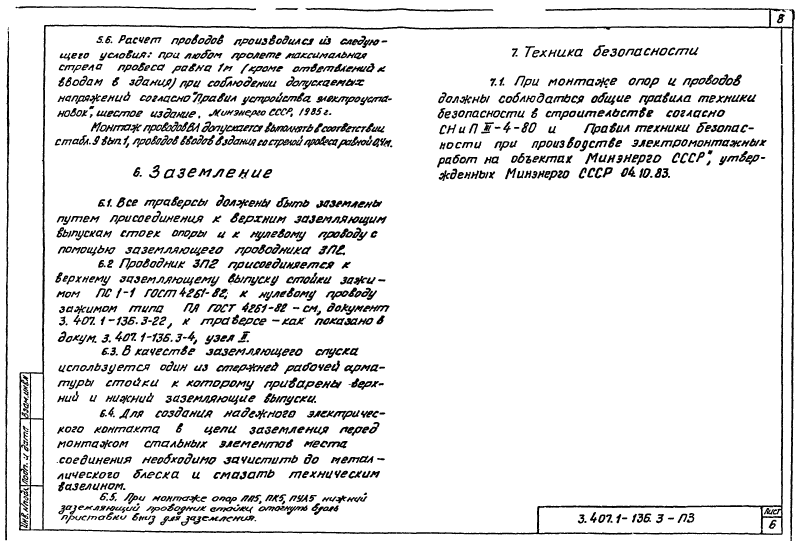 8
5.6. Расчет проводов производился из следую-
щего условия: при любом пролете максимальная
стрела провеса равна 1м (кроме ответвлений к
вводам в здания) при соблюдении допускаемых
напряжений согласно "Правил устройства электроуста-
новок", шестое издание, Минэнерго СССР, 1985г.
Монтаж проводов ВЛ допускается выполнять в соответствии
с табл. 9 вып. 1, проводов вводов в здания со стрелой провеса равной 0,4м.
6. Заземление
6.1. Все траверсы должены быть заземлены
путем присоединения к верхним заземляющим
выпускам стоек опоры и к нулевому проводу с
помощью заземляющего проводника ЗП2.
6.2 Проводник ЗП2 присоединяется к
верхнему заземляющему выпуску стойки зажи-
мом ПС 1-1 ГОСТ 4261-82, к нулевому проводу
зажимом типа ПА ГОСТ 4261-82 - см, документ
3. 407. 1-136. 3-22, к траверсе - как показано в
докум. 3. 407. 1-136. 3-4, узел II.
6.3. В качестве заземляющего спуска
используется один из стержней рабочей арма-
туры стойки к которому приварены верх-
ний и нижний заземляющие выпуски.
6.4. Для создания надежного электричес-
кого контакта в цепи заземления перед
монтажом стальных элементов места
соединения необходимо зачистить до метал-
лического блеска и смазать техническим
вазелином.
6.5. При монтаже опор ПП5, ПК5, ПУА5 нижний
заземляющий проводник стойки отогнуть вдоль
приставки вниз для заземления.
7. Техника безопасности
7.1. При монтаже опор и проводов
должны соблюдаться общие правила техники
безопасности в строительстве согласно
СНиП III-4-80 и Правил техники безопас-
ности при производстве электромонтажных
работ на объектах Минэнерго СССР", утвер-
жденных Минэнерго СССР 04.10.83.
Инв. №подл. Подп. и дата Взам.инв№
3.407.1-136.3-ПЗ
Лист
6